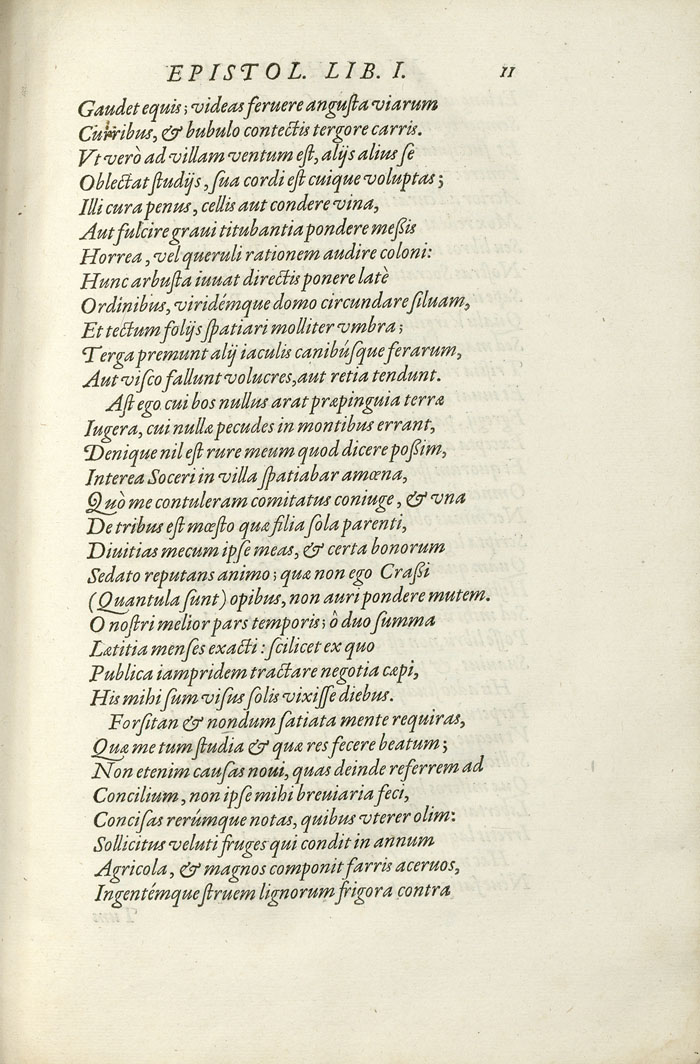 EPISTOL. LIB. I. 11
Gaudet equis; videas feruere angusta viarum
Curribus, & bubulo contectis tergore carris.
Vt verò ad villam ventum est, alijs alius se
Oblectat studijs, sua cordi est cuique voluptas;
Illi cura penus, cellis aut condere vina,
Aut fulcire graui titubantia pondere meßis
Horrea, vel queruli rationem audire coloni:
Hunc arbusta iuuat directis ponere latè
Ordinibus, viridémque domo circundare siluam,
Et tectum folijs spatiari molliter vmbra;
Terga premunt alij iaculis canibúsque ferarum,
Aut visco fallunt volucres, aut retia tendunt.
Ast ego cui bos nullus arat præpinguia terræ
Iugera, cui nullæ pecudes in montibus errant,
Denique nil est rure meum quod dicere poßim,
Interea Soceri in villa spatiabar amœna,
Quò me contuleram comitatus coniuge, & vna
De tribus est mœsto quæ filia sola parenti,
Diuitias mecum ipse meas, & certa bonorum
Sedato reputans animo; quæ non ego Craßi
(Quantula sunt) opibus, non auri pondere mutem.
O nostri melior pars temporis; ô duo summa
Lætitia menses exacti: scilicet ex quo
Publica iampridem tractare negotia cæpi,
His mihi sum visus solis vixisse diebus.
Forsitan & nondum satiata mente requiras,
Quæ me tum studia & quæ res fecere beatum;
Non etenim causas noui, quas deinde referrem ad
Concilium, non ipse mihi breuiaria feci,
Concisas rerúmque notas, quibus vterer olim:
Sollicitus veluti fruges qui condit in annum
Agricola, & magnos componit farris aceruos,
Ingentémque struem lignorum frigora contra